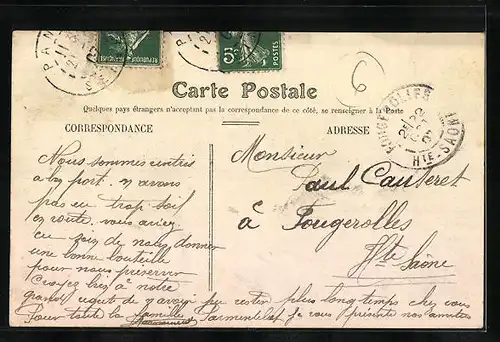 PAN
5c
POSTES
6
Carte Postale
Quelques pays étrangers n'acceptant pas la correspondance de ce côté, se renseigner à la Poste
CORRESPONDANCE
ADRESSE
FOUGEROLLES
Hte-SAONE
Nous sommes rentrés
à bon port. n'avons
pas eu trop soif
en route. vous aviez
eu soin de nous donner
une bonne bouteille
pour nous préserver
Croyez bien à notre
grand regret de n'avoir pu rester plus longtemps chez vous
Pour toute la famille Parmentelat je vous présente nos amitiés
Monsieur
Paul Cauteret
à Fougerolles
Hte Saône